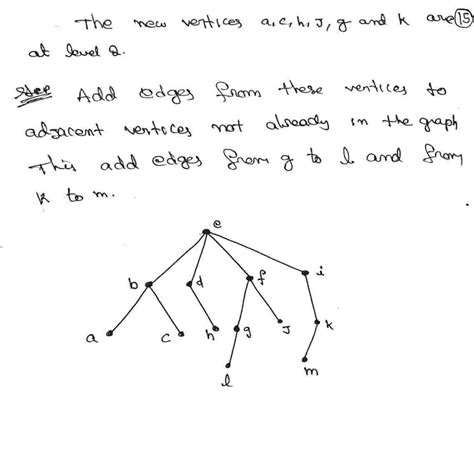 The new vertices a, c, h, J, g and k are 15
at level 2.
Step Add edges from these vertices to
adjacent vertices not already in the graph
This add edges from g to l and from
k to m.
e
b d f i
a c h g J k
l m